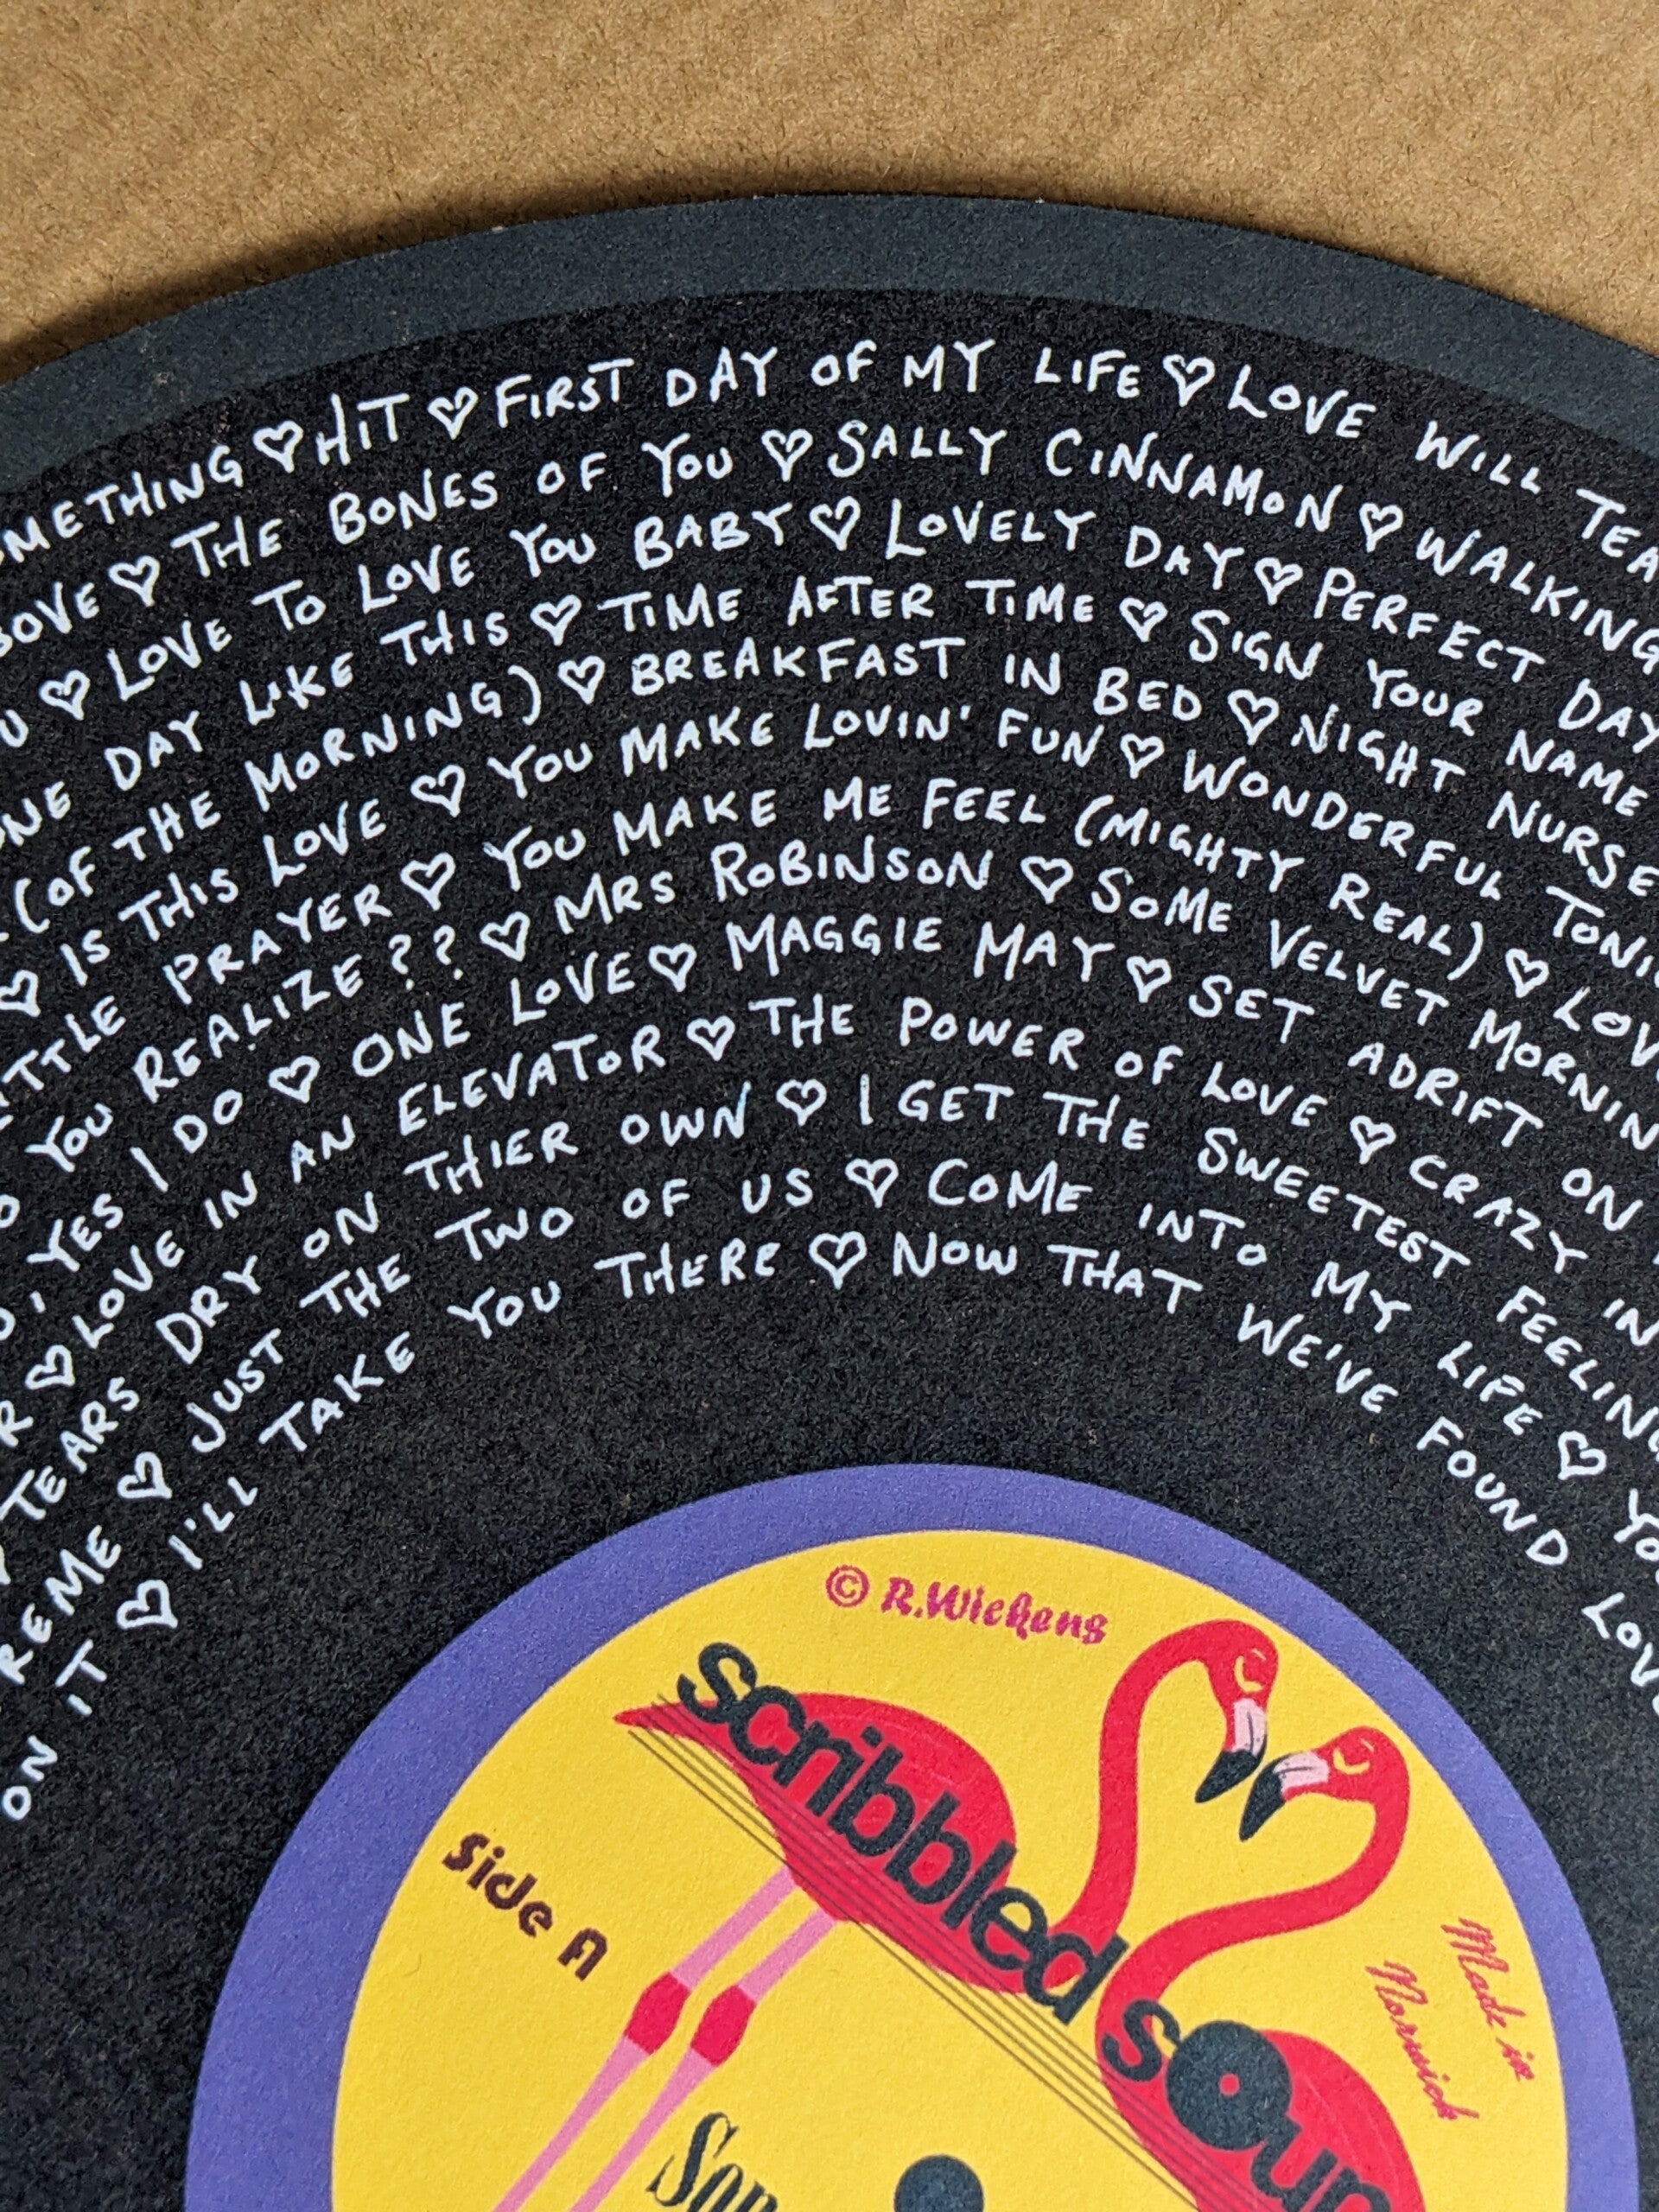 HIT ♡ FIRST DAY OF MY LIFE ♡ LOVE WILL
♡ THE BONES OF YOU ♡ SALLY CINNAMON ♡ WALKING
♡ LOVE TO LOVE YOU BABY ♡ LOVELY DAY ♡ PERFECT DAY
DAY LIKE THIS ♡ TIME AFTER TIME ♡ SIGN YOUR NAME
(OF THE MORNING) ♡ BREAKFAST IN BED ♡ NIGHT NURSE
♡ IS THIS LOVE ♡ YOU MAKE LOVIN' FUN ♡ WONDERFUL
PRAYER ♡ YOU MAKE ME FEEL (MIGHTY REAL) ♡
YOU REALIZE?? ♡ MRS ROBINSON ♡ SOME VELVET
YES I DO ♡ ONE LOVE ♡ MAGGIE MAY ♡ SET ADRIFT ON
♡ LOVE IN AN ELEVATOR ♡ THE POWER OF LOVE ♡ CRAZY IN
TEARS DRY ON THIER OWN ♡ I GET THE SWEETEST
ME ♡ JUST THE TWO OF US ♡ COME INTO MY LIFE ♡
ON IT ♡ I'LL TAKE YOU THERE ♡ NOW THAT WE'VE FOUND
© R.Wickens
scribbled
Side A
Made in
Norwich